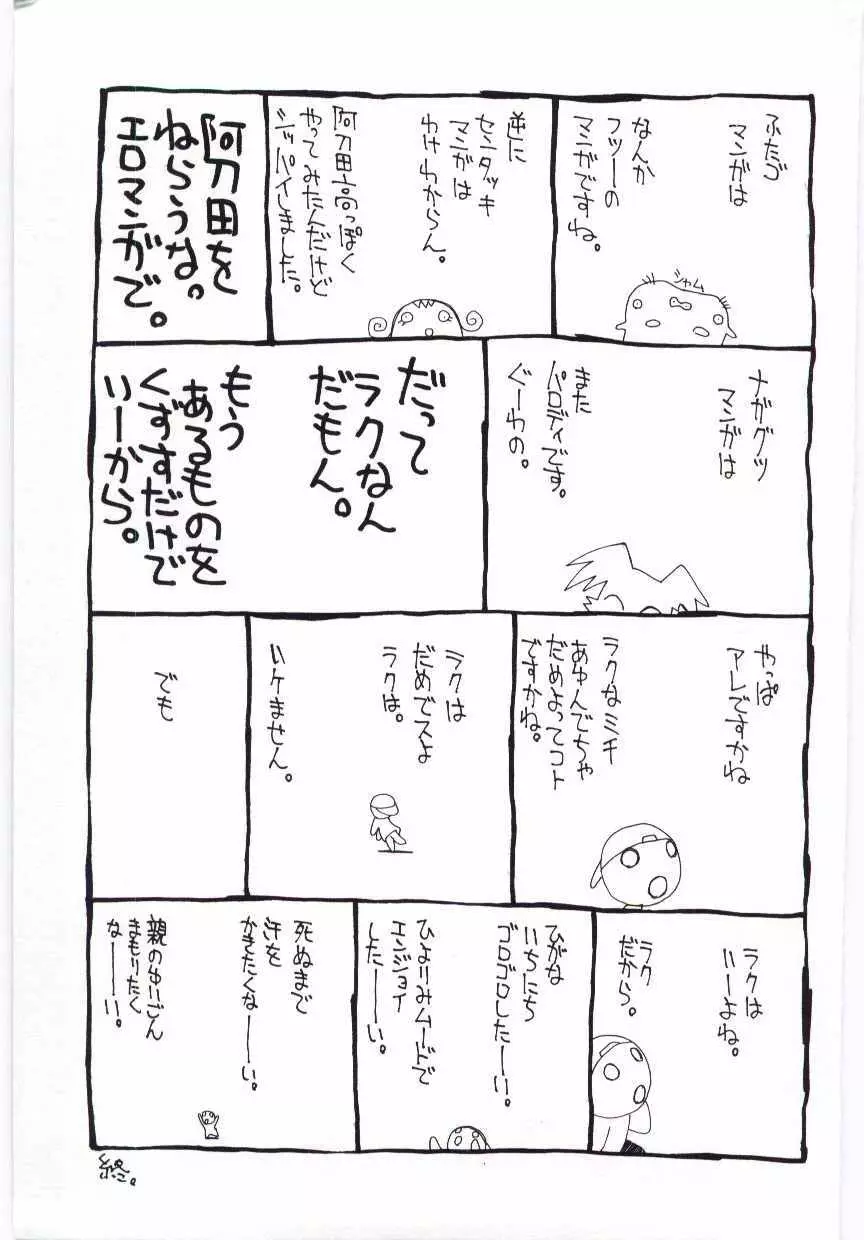 ふたご
マンガは
なんか
フツーの
マンガですね。
シャム
逆に
センタッキ
マンガは
わけわからん。
阿刀田高っぽく
やってみたんだけど
シッパイしました。
阿刀田を
ねらうな。
エロマンガで。
ナガグツ
マンガは
また
パロディです。
ぐーわの。
だって
ラクなん
だもん。
もう
あるものを
くずすだけで
いーから。
やっぱ
アレですかね
ラクなミチ
あゆんでちゃ
だめよってコト
ですかね。
ラクは
だめでスよ
ラクは。
いケません。
でも
ラクは
いーよね。
ラク
だから。
ひがな
いちにち
ゴロゴロしたーい。
ひよりみムードで
エンジョイ
したーい。
死ぬまで
汗を
かきたくなーい。
親のゆいごん
まもりたく
なーい。
終。